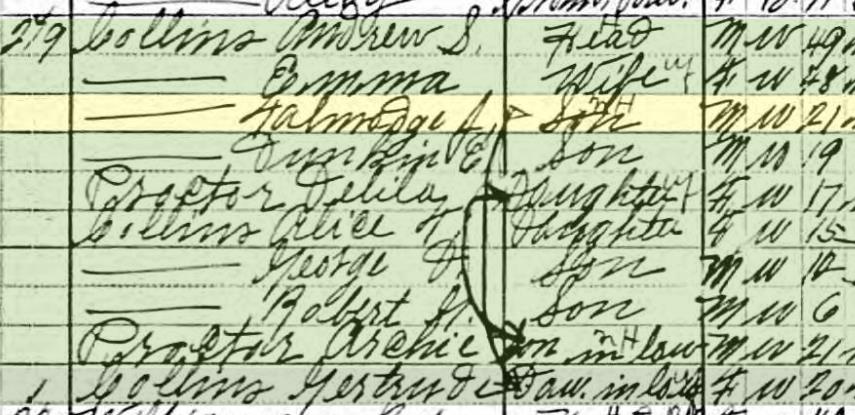 249 Collins Andrew S. Head M W 49
Emma Wife F W 48
Talmadge J. Son M W 21
Dunkin E. Son M W 19
Proctor Delila Daughter F W 17
Collins Alice Daughter F W 15
George Son M W
Robert Son M W 6
Proctor Archie Son in law M W 21
1 Collins Gertrude Dau. in law F W 20